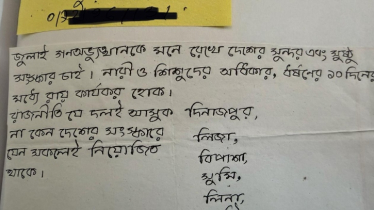 জুলাই গনঅভ্যুত্থানকে মনে রেখে দেশের সুন্দর এবং সুষ্ঠু
সংস্কার চাই। নারী ও শিশুদের অধিকার, ধর্ষনের ৯০ দিনের
মধ্যে রায় কার্যকর হোক।
রাজনীতি যে দলই আসুক
না কেন দেশের সংস্কারে
যেন সকলেই নিয়োজিত
থাকে।
দিনাজপুর,
লিজা,
বিপাশা,
সুমি,
লিনা,